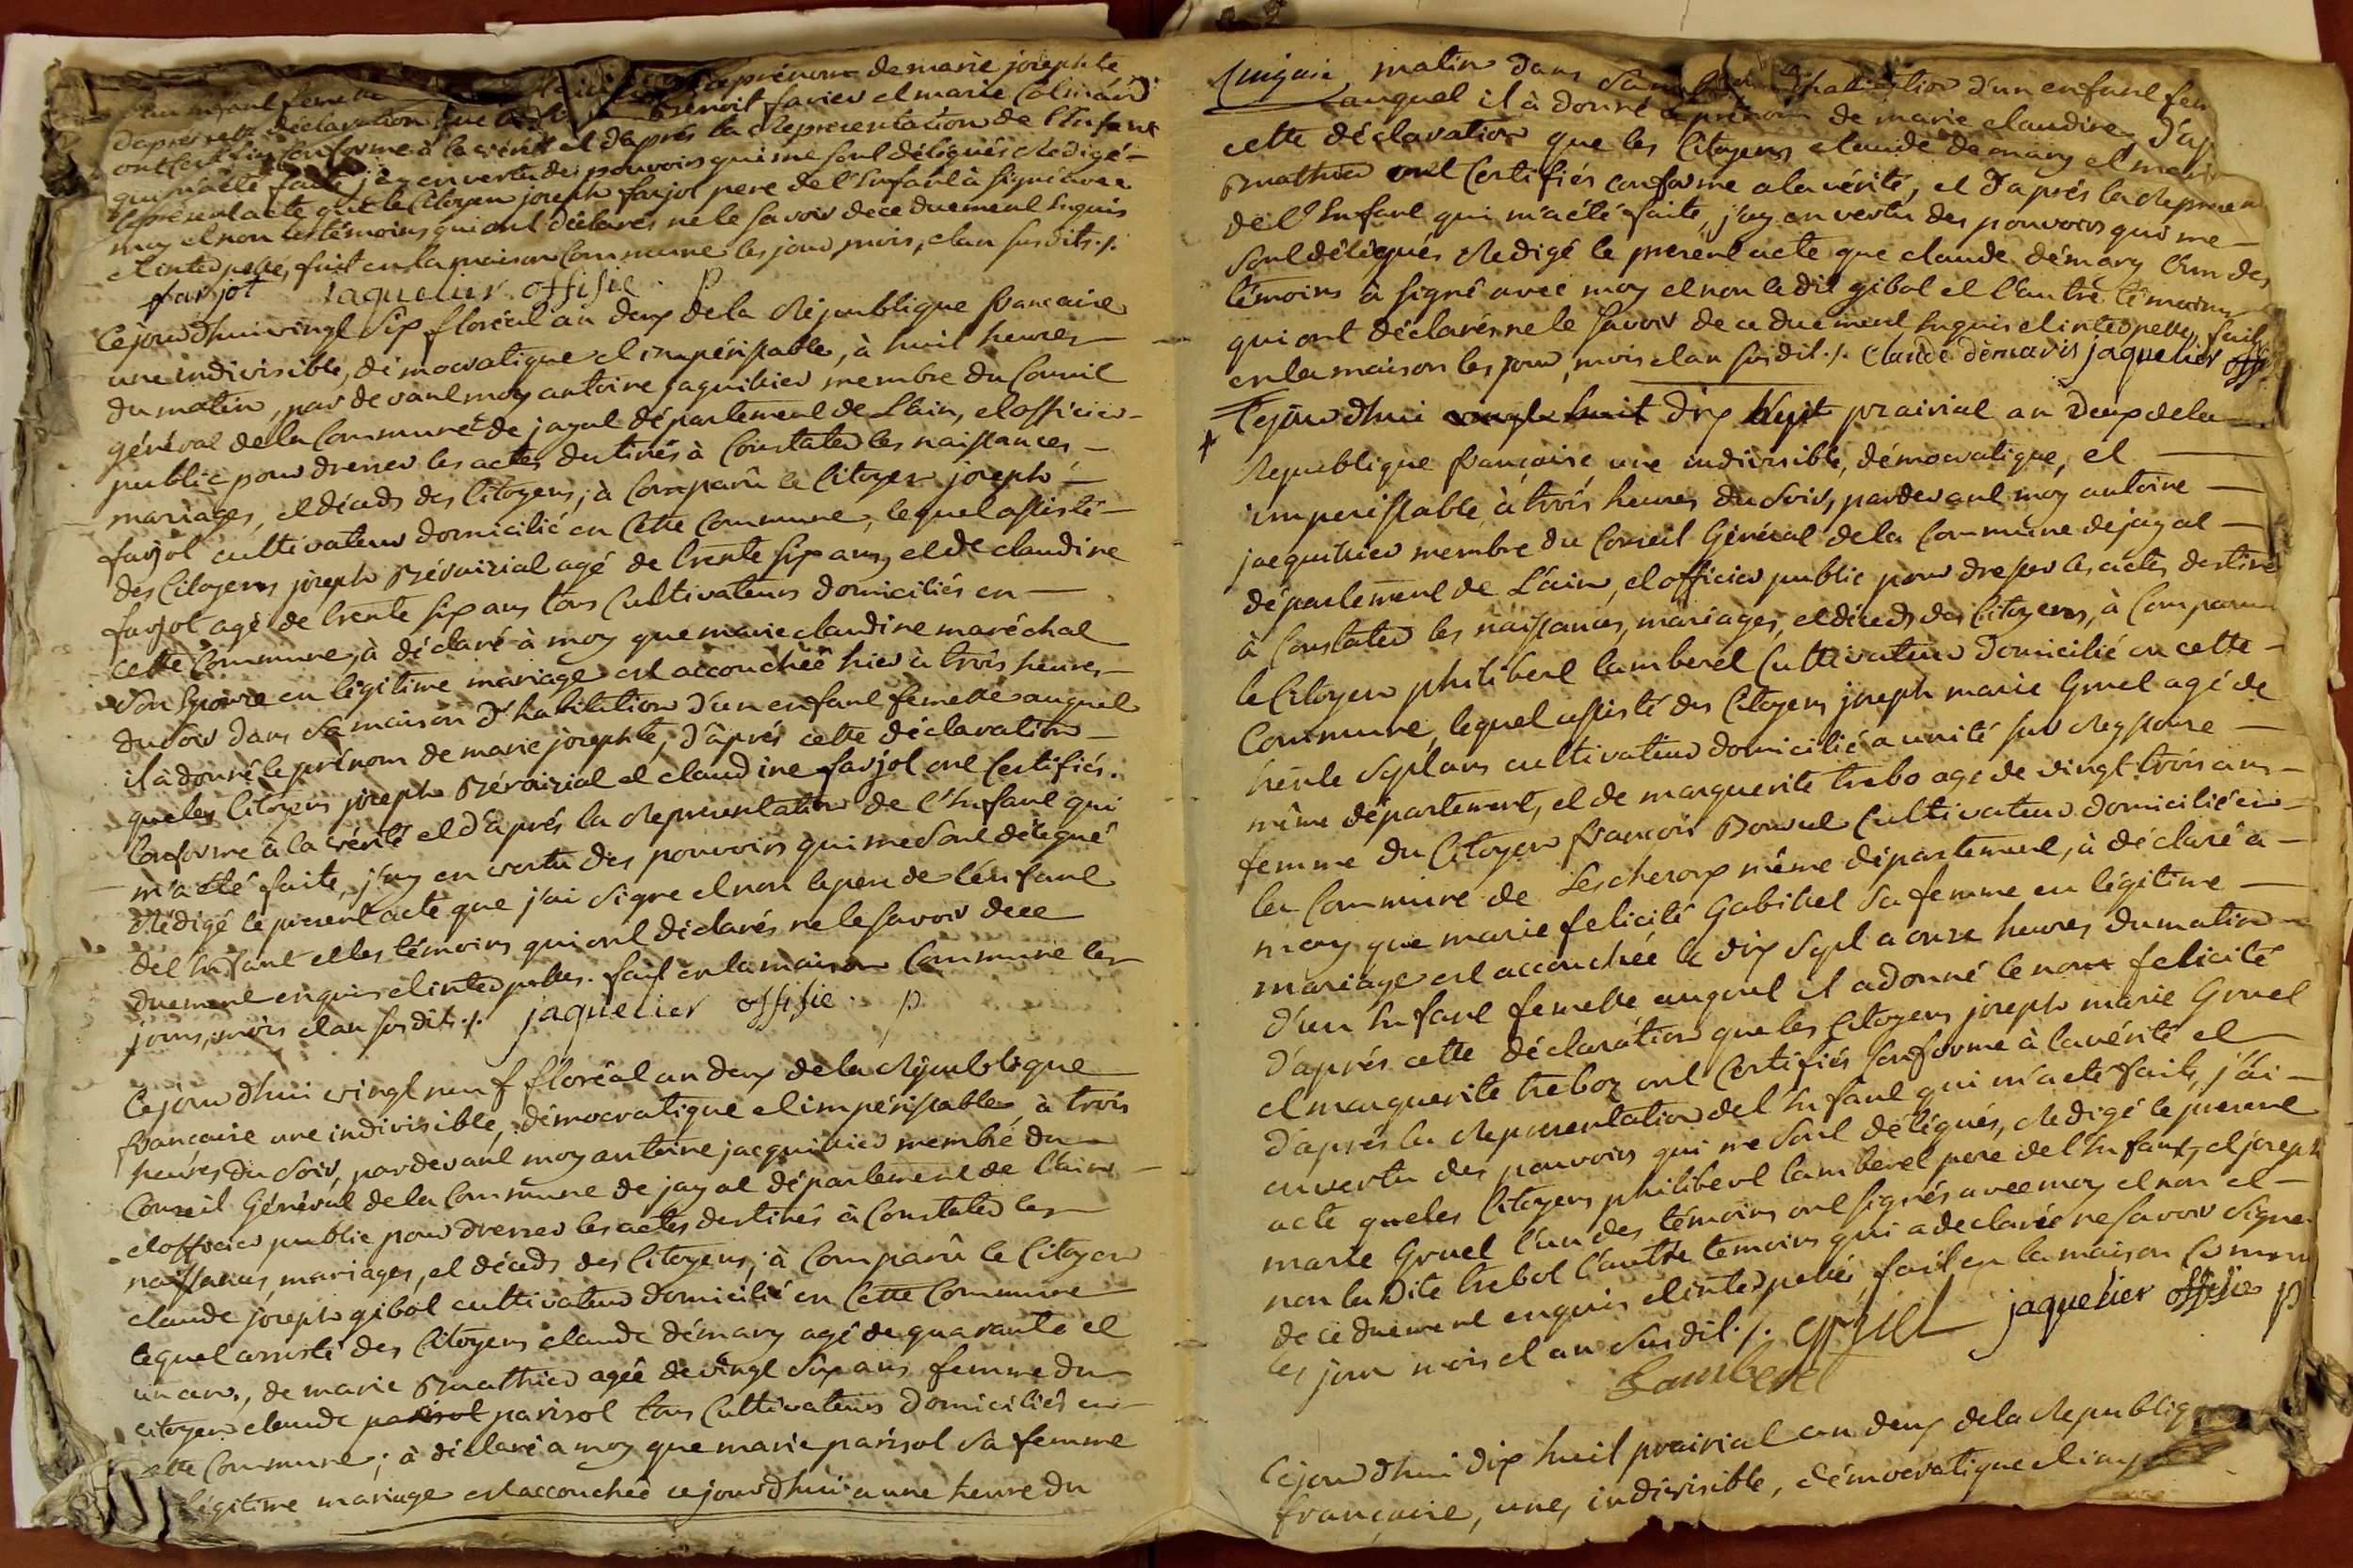 d'un enfant femelle prénom de marie josephte
d'après cette déclaration que benoit favier et marie Colinán
ont certifiés conforme à la vérité et d'après la Representation de l'Enfant
qui m'a été faite j'ay en vertu des pouvoirs qui me sont délégués Redigé
le présent acte que le Citoyen joseph farjot pere de l'Enfant à signé avec
moy et non les témoins qui ont déclarés ne le savoir de ce duement Enquis
et interpellés, fait en la maison Commune les jour mois, et an susdits ./.
farjot jaquelier offisie p
Cejourdhui vingt six floréal an deux de la République française
une indivisible, démocratique et impérissable, à huit heures
du matin, par devant moy antoine jaquillier membre du Conseil
général de la Commune de jayat département de L'ain, et officier
public pour dresser les actes destinés à Constater les naissances,
mariages, et décéds des Citoyens, à Comparû le Citoyen joseph
farjot cultivateur domicilié en Cette Commune, lequel assisté
des Citoyens joseph Révairial agé de trente six ans, et de claudine
farjot agé de trente six ans tous Cultivateurs domiciliés en
cette Commune, à déclaré à moy que marie claudine maréchal
son Epouse en légitime mariage est accouchée hier à trois heures
du soir dans sa maison d'habitation d'un enfant femelle auquel
il à donné le prénom de marie josephte, d'après cette déclaration
que les Citoyens joseph Révairial et claudine farjot ont Certifiés
Conforme à la vérité et d'après la Representation de l'Enfant qui
m'a été faite, j'ay en vertu des pouvoirs qui me sont délégué
Rédigé le present acte que j'ai signe et non le pere de l'enfant
del'Enfant et les témoins qui ont déclarés ne le savoir de ce
duement enquis et interpellés. fait en la maison Commune les
jours, mois et an susdits ./. jaquelier offisie p
Cejourdhui vingt neuf floréal an deux de la République
française une indivisible, démocratique et impérissable, à trois
heures du soir, pardevant moy antoine jacquillier membre du
Conseil Général de la Commune de jayat département de L'ain
et officier public pour dresser les actes destinés à Constater les
naissances, mariages, et décéds des Citoyens, à Comparû le Citoyen
claude joseph gibot cultivateur domicilié en Cette Commune
lequel assisté des Citoyens claude démary agé de quarante et
un ans, de marie Rmathier agée de vingt six ans femme du
citoyen claude parisot parisot tous Cultivateurs domiciliés en
cette Commune; à déclaré a moy que marie parisot sa femme
légitime mariage est accouchée cejourdhui a une heure du
matin dans sa maison d'habitation d'un enfant fem
auquel il à donné le prénom de marie claudine, d'ap
cette déclaration que les Citoyens claude démary et marie
Rmathier ont Certifiés conforme a la vérité, et d'après la Represen
de l'Enfant qui m'a été faite, j'ay en vertu des pouvoirs qui me
sont délégués Redigé le present acte que claude démary l'un des
témoins à signé avec moy et non le dit gibot et l'autre témoins
qui ont déclarés ne le savoir de ce duement Enquis et interpellés, fait
en la maison les jour, mois et an susdit ./. Claude démaris jaquelier offi
Cejourdhui vingt huit dix huit prairial an deux de la
Republique française une indivisible, démocratique, et
imperissable, à trois heures du soir, pardevant moy antoine
jacquillier membre du Conseil Général de la Commune de jayat
département de L'ain, et officier public pour dresser les actes destiné
à Constater les naissances, mariages, et décéds des Citoyens, à Comparu
le Citoyen philibert lamberet Cultivateur domicilié en cette
Commune, lequel assisté des Citoyens joseph marie Gruel agé de
trente sept ans cultivateur domicilié a unité sur Reyssouze
même département, et de marguerite trebo age de vingt trois ans
femme du Citoyen françois Bonvel Cultivateur domicilié en
la Commune de Lescheroux même département, à déclaré a
moy que marie felicité Gabillet sa femme en légitime
mariage est accouchée le dix sept a onze heures du matin
d'un Enfant femelle auquel il a donné le nom felicité
d'après cette déclaration que les Citoyens joseph marie Gruel
et marguerite treboz ont Certifiés Conforme à la vérité et
d'après la Representation de l'Enfant qui m'a été faite, j'ai
en vertu des pouvoirs qui me sont délégués, Redigé le present
acte que les Citoyens philibert lamberet pere de l'Enfant, et joseph
marie Gruel l'un des témoins ont signés avec moy et non et
non la dite trebot l'autre temoins qui a declarée ne savoir signer
de ce duement enquis et interpellé, fait en la maison Commu
les jour mois et an susdit ./. gruel jaquelier offisie p
Lamberet
Cejourdhui dix huit prairial an deux de la Republiq
française, une, indivisible, démocratique et imp